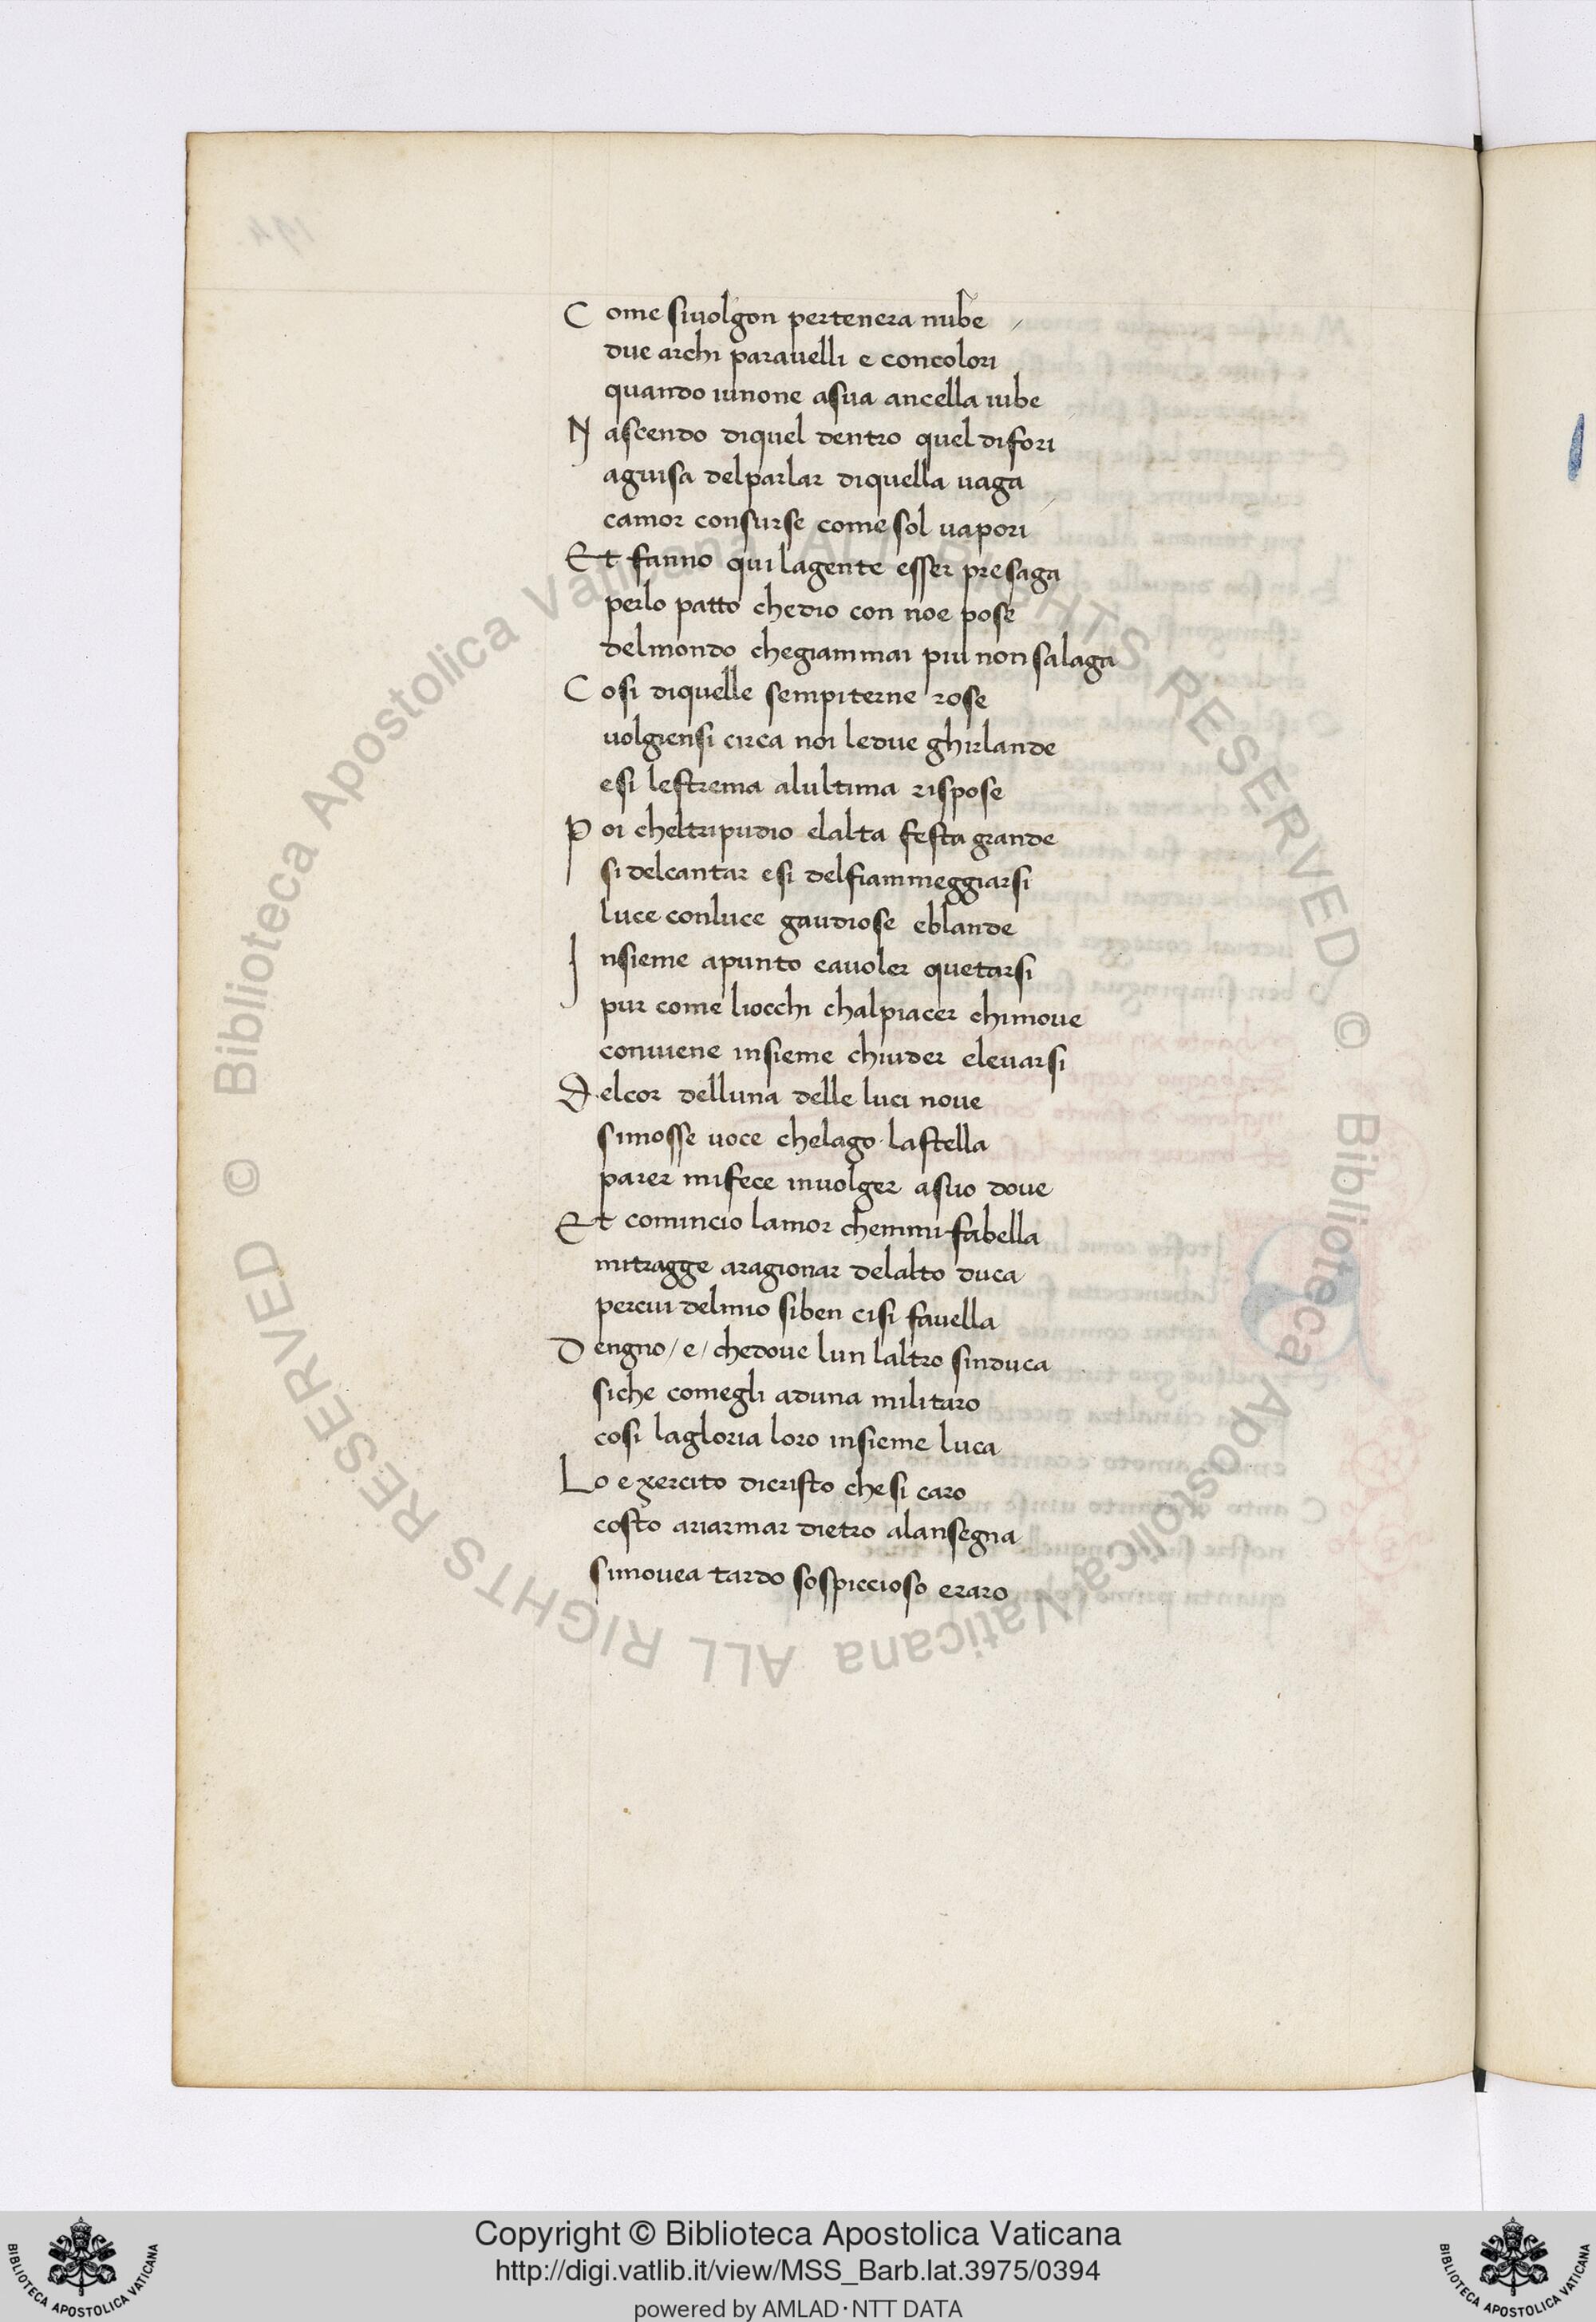 Come siuolgon pertenera nube
due archi parauelli e concolori
quando iunone asua ancella iube
Nascendo diquel dentro quel difori
aguisa delparlar diquella uaga
camor consurse come sol uapori
Et fanno qui lagente esser presaga
perlo patto chedio con noe pose
delmondo chegiammai piu non salaga
Cosi diquelle sempiterne rose
uolgiensi circa noi ledue ghirlande
esi lestrema alultima rispose
Poi cheltripudio elalta festa grande
si delcantar esi delfiammeggiarsi
luce conluce gaudiose eblande
Insieme apunto eauoler quetarsi
pur come liocchi chalpiacer chimoue
conuiene insieme chiuder eleuarsi
Delcor delluna delle luci noue
simosse uoce chelago lastella
parer mifece inuolger asuo doue
Et comincio lamor chemmi fabella
mitragge aragionar delalto duca
percui delmio siben cisi fauella
Dengno / e / chedoue lun laltro sinduca
siche comegli aduna militaro
cosi lagloria loro insieme luca
Lo exercito dicristo chesi caro
costo ariarmar dietro alansegna
simouea tardo sospiccioso eraro
194
© Biblioteca Apostolica Vaticana ALL RIGHTS RESERVED © Biblioteca Apostolica Vaticana ALL RIGHTS RESERVED
Copyright © Biblioteca Apostolica Vaticana
http://digi.vatlib.it/view/MSS_Barb.lat.3975/0394
powered by AMLAD·NTT DATA
BIBLIOTECA APOSTOLICA VATICANA
BIBLIOTECA APOSTOLICA VATICANA